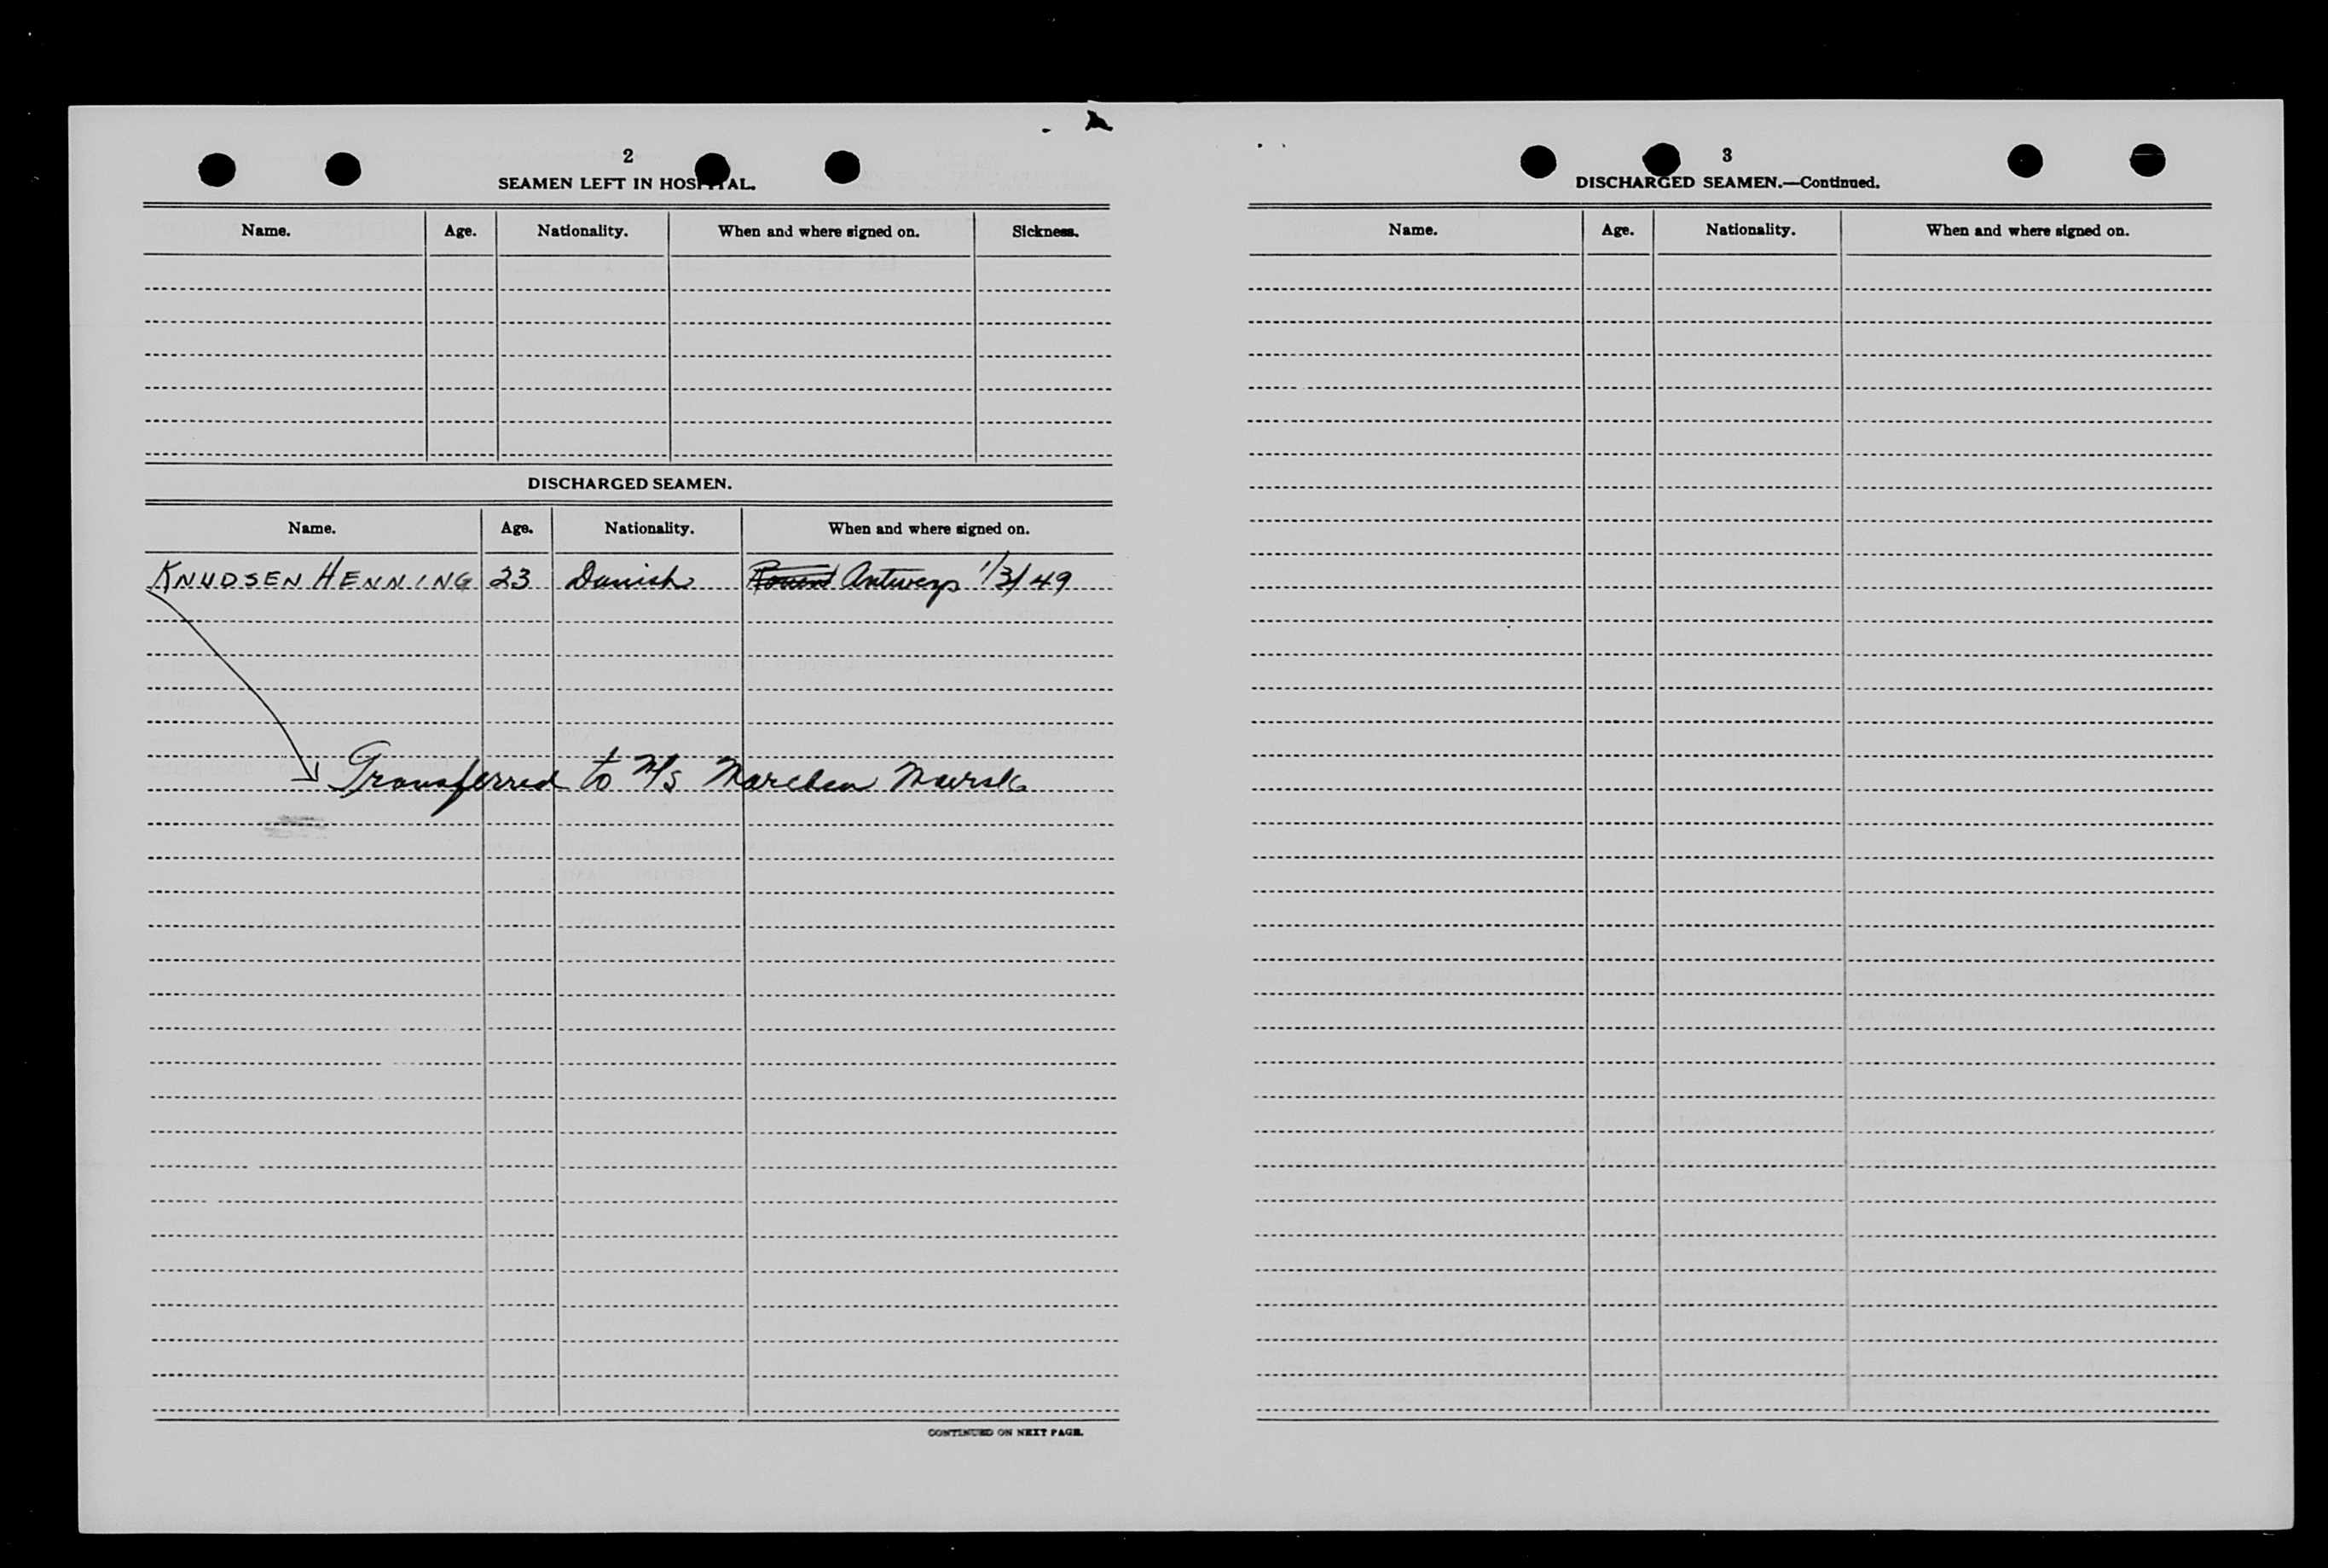 2
SEAMEN LEFT IN HOSPITAL.
Name. Age. Nationality. When and where signed on. Sickness.
DISCHARGED SEAMEN.
Name. Age. Nationality. When and where signed on.
KNUDSEN HENNING 23 Danish Antwerp 1/3/49
Transferred to M/S Marchen Maersk
CONTINUED ON NEXT PAGE.
3
DISCHARGED SEAMEN.—Continued.
Name. Age. Nationality. When and where signed on.